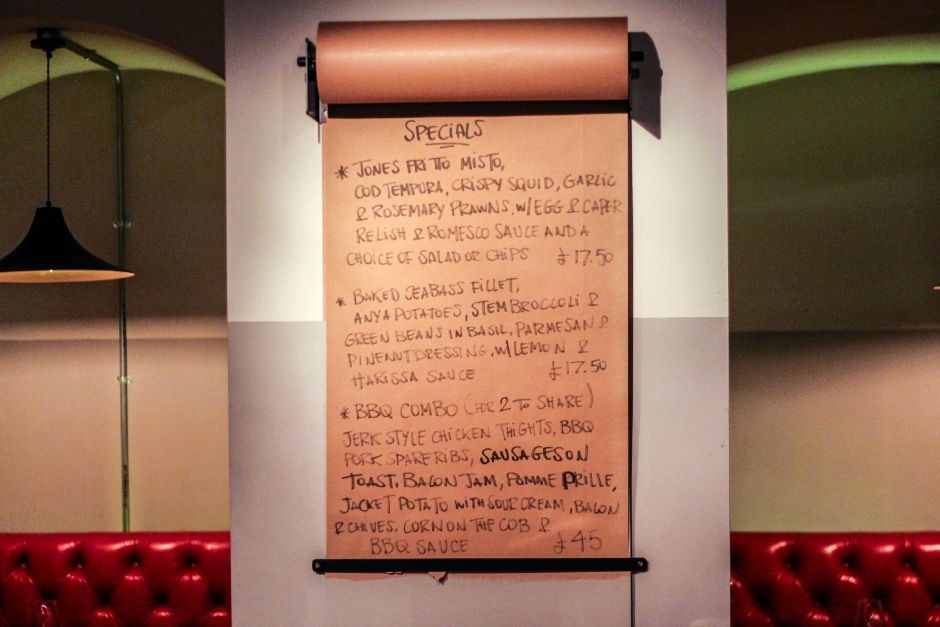 SPECIALS
* JONES FRITTO MISTO,
COD TEMPURA, CRISPY SQUID, GARLIC
& ROSEMARY PRAWNS, W/ EGG & CAPER
RELISH & ROMESCO SAUCE AND A
CHOICE OF SALAD OR CHIPS £17.50
* BAKED SEABASS FILLET,
ANYA POTATOES, STEM BROCCOLI &
GREEN BEANS IN BASIL, PARMESAN &
PINENUT DRESSING, W/ LEMON &
HARISSA SAUCE £17.50
* BBQ COMBO (FOR 2 TO SHARE)
JERK STYLE CHICKEN THIGHTS, BBQ
PORK SPARERIBS, SAUSAGES ON
TOAST, BACON JAM, POMME PRILLE,
JACKET POTATO WITH SOUR CREAM, BACON
& CHIVES, CORN ON THE COB &
BBQ SAUCE £45